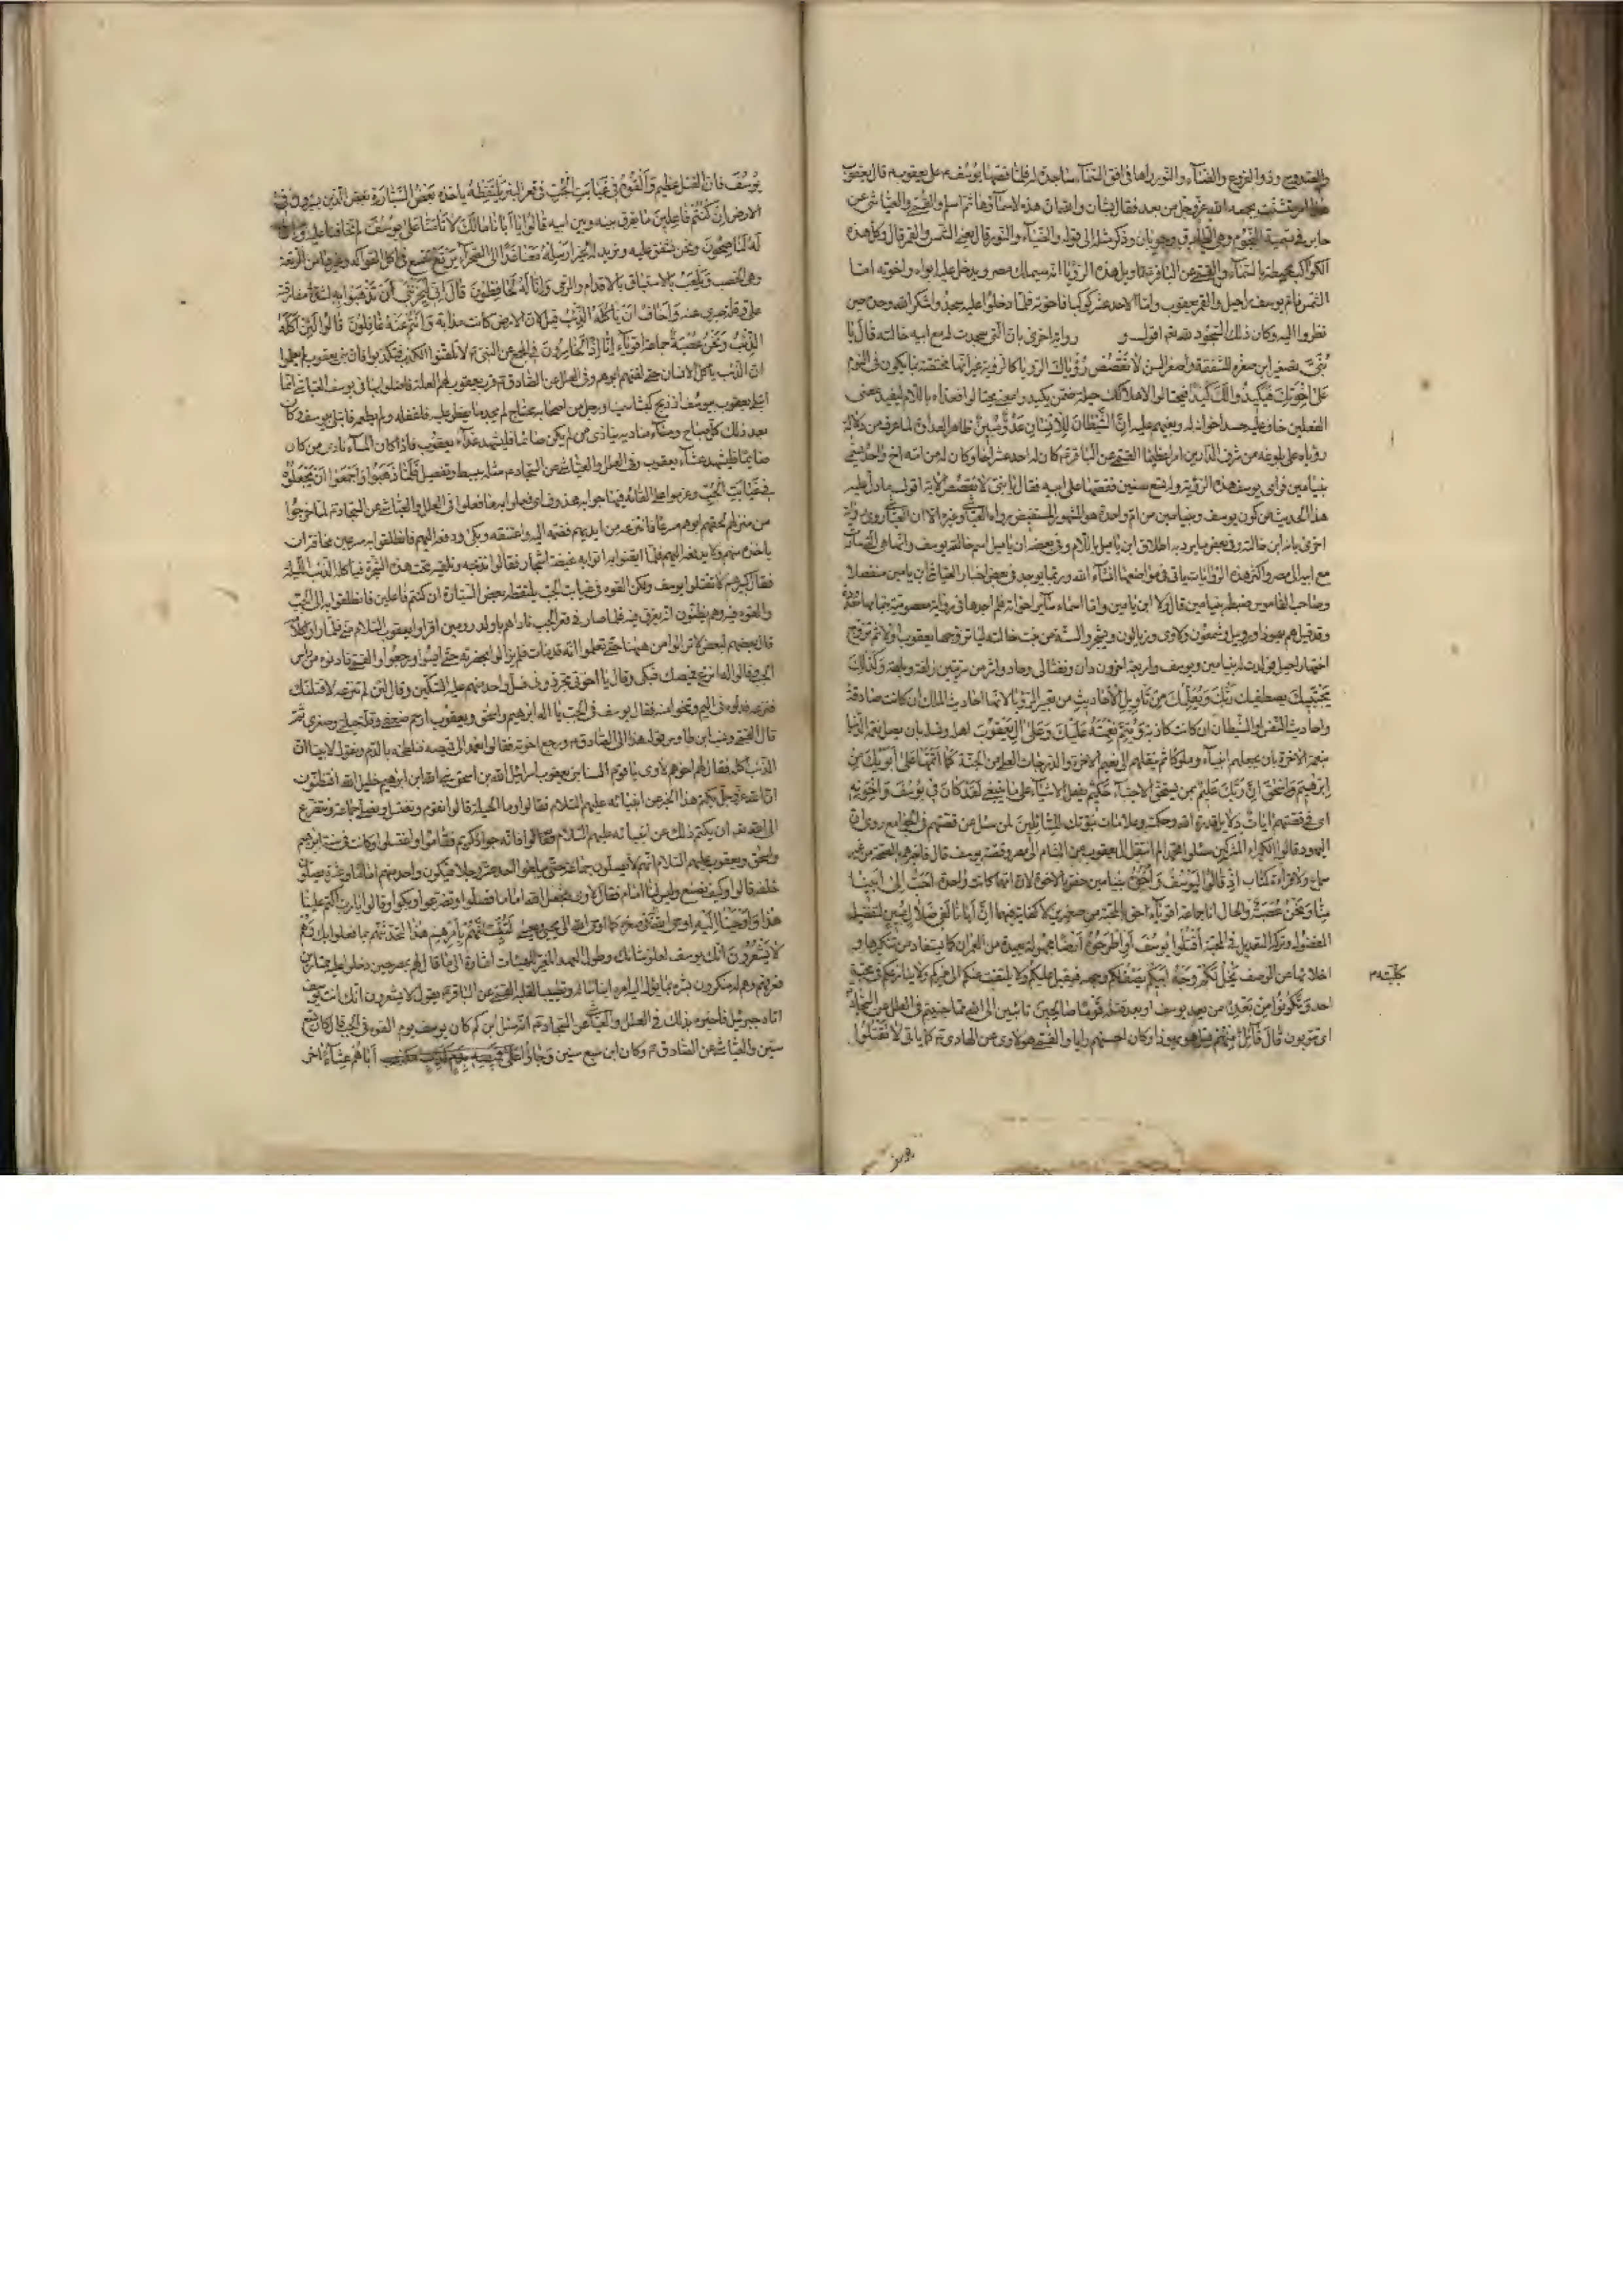 والصروح وذو الفروع والضياء والنور رآها في افق السماء ساجدة له فلما قصها يوسف على يعقوب قال يعقوب
هذا امر متشتت يجمعه الله عز وجل من بعد فقال بشان والله ان هذه لاسماؤها ثم اسلم والقمي والعياشي عن
جابر في تسمية النجوم وهي الطارق وحوبان وذكر مثله الى قوله والضياء والنور قال يعني الشمس والقمر قال وكل هذه
الكواكب محيطة بالسماء والقمي عن الباقر تاويل هذه الرؤيا انه سيملك مصر ويدخل عليه ابواه واخوته اما
الشمس فام يوسف راحيل والقمر يعقوب واما الاحد عشر كوكبا فاخوته فلما دخلوا عليه سجدوا شكرا لله وحده حين
نظروا اليه وكان ذلك السجود لله تعالى اقول و رواية اخرى بان التي سجدت له مع ابيه خالته قال يا
بني تصغير ابن صغره للشفقة ولصغر السن لا تقصص رؤياك الرؤيا كالرؤية غير انها مختصة بما يكون في النوم
على اخوتك فيكيدوا لك كيدا فيحتالوا لاهلاكك حيلة ضمن يكيدوا معنى يحتالوا فعداه باللام ليفيد معنى
الفعلين خاف عليه حسد اخوانه له وبغيهم عليه ان الشيطان للانسان عدو مبين ظاهر العداوة لما عرفه من دلالة
رؤياه على بلوغه من شرف الدارين امرا عظيما القمي عن الباقر كان له احد عشر اخا وكان له من امه اخ واحد يسمى
بنيامين فراى يوسف هذه الرؤية وله تسع سنين فقصها على ابيه فقال يا بني لا تقصص الآية اقول ما دل عليه
هذا الحديث من كون يوسف وبنيامين من ام واحدة هو المشهور المستفيض رواه العياشي وغيره الا ان العياشي روى رواية
اخرى بانه ابن خالته وفي بعض ما يرويه اطلاق ابن ياميل باللام وفي بعضه ان ياميل اسم خالة يوسف وانها هي التي صارت
مع ابيه الى مصر واكثر هذه الروايات ياتي في مواضعها انشاء الله وربما يوجد في بعض اخبار العياشي ابن يامين منفصلا
وصاحب القاموس ضبطه بنيامين قال ولا ابن يامين واما اسماء سائر اخوانه فلم اجدها في رواية معصومية
وقد قيل هم يهودا وروبيل وشمعون ولاوى وزبالون ويشجر والستة من بنت خالته ليا تزوجها يعقوب اولا ثم تزوج
اختها راحيل فولدت له بنيامين ويوسف واربعة اخرون دان ونفتالى وجاد واشر من سريتين زلفة وبلهة وكذلك
يجتبيك يصطفيك ربك ويعلمك من تاويل الاحاديث من تعبير الرؤيا لانها احاديث الملك ان كانت صادقة
واحاديث النفس او الشيطان ان كانت كاذبة ويتم نعمته عليك وعلى آل يعقوب اهله ونسله بان يصل نعمة الدنيا
بنعمة الاخرة بان يجعلهم انبياء وملوكا ثم ينقلهم الى نعيم الاخرة والدرجات العلى من الجنة كما اتمها على ابويك من
ابرهيم واسحق ان ربك عليم بمن يستحق الاجتباء حكيم يفعل الاشياء على ما ينبغي لقد كان في يوسف واخوته
اي في قصتهم آيات دلايل قدرة الله وحكمته وعلامات نبوتك للسائلين لمن سئل عن قصتهم في الجوامع روى ان
اليهود قالوا لكبراء المشركين سلوا محمدا لم انتقل آل يعقوب من الشام الى مصر وعن قصة يوسف قال فاخبرهم بالصحة من غير
سماع ولا قراءة كتاب اذ قالوا ليوسف واخوه بنيامين خص بالاخوة لان امهما كانت واحدة احب الى ابينا
منا ونحن عصبة والحال انا جماعة اقوياء احق بالمحبة من صغيرين لا كفاية فيهما ان ابانا لفي ضلال مبين لتفضيله
المفضول وترك التعديل في المحبة اقتلوا يوسف او اطرحوه ارضا مجهولة بعيدة من العمران كما يستفاد من تنكيرها و
اخلائها من الوصف يخل لكم وجه ابيكم يصف لكم وجهه فيقبل عليكم ولا يلتفت عنكم الى غيركم ولا ينازعكم في محبته
بكليته
احد وتكونوا من بعده من بعد يوسف او بعد قتله قوما صالحين تائبين الى الله مما جنيتم في العلل عن السجاد
اي تتوبون قال قائل منهم قيل هو يهودا وكان احسنهم رايا والقمي هو لاوى عن الهادي كما ياتي لا تقتلوا
يوسف فان القتل عظيم والقوه في غيابت الجب في قعر البئر يلتقطه ياخذه بعض السيارة بعض الذين يسيرون في
الارض ان كنتم فاعلين ما يفرق بينه وبين ابيه قالوا يا ابانا مالك لا تامنا على يوسف لم تخافنا عليه وانا
له لناصحون ونحن نشفق عليه ونريد له الخير ارسله معنا غدا الى الصحراء يرتع نتسع في اكل الفواكه وغيرها من الرتعة
وهي الخصب ويلعب بالاستباق بالاقدام والرمي وانا له لحافظون قال اني ليحزنني ان تذهبوا به لشدة مفارقته
علي وقلة صبري عنه واخاف ان ياكله الذئب قيل لان الارض كانت مذابة وانتم عنه غافلون قالوا لئن اكله
الذئب ونحن عصبة جماعة اقوياء انا اذا لخاسرون في المجمع عن النبي لا تلقنوا الكذب فتكذبوا فان بني يعقوب لم يعلموا
ان الذئب ياكل الانسان حتى لقنهم ابوهم وفي العلل عن الصادق قرب يعقوب لهم العلة فاعتلوا بها في يوسف العياشي انما
ابتلي يعقوب بيوسف اذ ذبح كبشا سمينا ورجل من اصحابه محتاج لم يجد ما يفطر عليه فاغفله ولم يطعمه فابتلي بيوسف وكان
بعد ذلك كل صباح ومساء مناديه ينادي من لم يكن صائما فليشهد غداء يعقوب فاذا كان المساء نادى من كان
صائما فليشهد عشاء يعقوب وفي العلل والعياشي عن السجاد مثله ببسط وتفصيل فلما ذهبوا به واجمعوا ان يجعلوه
في غيابت الجب وعزموا على القائه فيها جوابه محذوف اي فعلوا به ما فعلوا في العلل والعياشي عن السجاد لما خرجوا
من منزلهم لحقهم ابوهم مسرعا فانتزعه من ايديهم فضمه اليه واعتنقه وبكى ودفعه اليهم فانطلقوا به مسرعين مخافة ان
ياخذه منهم ولا يدفعه اليهم فلما ايقنوا به اتوا به غيضة اشجار فقالوا نذبحه ونلقيه تحت هذه الشجرة فياكله الذئب الليلة
فقال كبيرهم لا تقتلوا يوسف ولكن القوه في غيابت الجب يلتقطه بعض السيارة ان كنتم فاعلين فانطلقوا به الى الجب
والقوه فيه وهم يظنون انه يغرق فيه فلما صار في قعر الجب ناداهم يا ولد رومين اقراوا يعقوب السلام مني فلما راوا كلامه
قال بعضهم لبعض لا تزالوا من ههنا حتى تعلموا انه قد مات فلم يزالوا بحضرته حتى امسوا ورجعوا والقمي فادنوه من راس
الجب وقالوا له انزع قميصك فبكى وقال يا اخوتي تجردوني فسل واحد منهم عليه السكين وقال لئن لم تنزعه لاقتلنك
فنزعه فدلوه في اليم وتنحوا عنه فقال يوسف في الجب يا اله ابرهيم واسحق ويعقوب ارحم ضعفي وقلة حيلتي وصغري ثم
قال القمي ورجع اخوته فقالوا نعمد الى قميصه فنلطخه بالدم ونقول لابينا ان
الذئب اكله فقال لهم اخوهم لاوى يا قوم السنا بني يعقوب اسرائيل الله بن اسحق نبي الله ابن ابرهيم خليل الله افتظنون
ان الله عز وجل يكتم هذا الخبر عن انبيائه عليهم السلام فقالوا وما الحيلة قال نقوم ونغتسل ونصلي جماعة ونتضرع
الى الله ان يكتم ذلك عن انبيائه عليهم السلام فانه جواد كريم فقاموا واغتسلوا وكانت في سنة ابرهيم
واسحق ويعقوب عليهم السلام انهم لا يصلون جماعة حتى يبلغوا احد عشر رجلا فيكون واحد منهم امام وعشرة يصلون
خلفه قالوا وكيف نصنع وليس لنا امام فقال لاوى نجعل الله امامنا فصلوا وتضرعوا وبكوا وقالوا يا رب اكتم علينا
هذا واوحينا اليه اوحي اليه في صغره كما اوحي الله الى يحيى وعيسى لتنبئنهم بامرهم هذا لتحدثنهم بما فعلوا بك وهم
لا يشعرون انك يوسف لعلو شانك وطول العهد المغير للهيئات اشارة الى ما قال لهم بمصر حين دخلوا عليه ممتارين
فعرفهم وهم له منكرون بشره بما يؤل اليه امره ايناسا له وتطييبا لقلبه القمي عن الباقر يقول لا يشعرون انك انت يوسف
اتاه جبرئيل فاخبره بذلك في العلل والعياشي عن السجاد انه سئل ابن كم كان يوسف يوم القوه في الجب قال كان ابن تسع
سنين والعياشي عن الصادق وكان ابن سبع سنين وجاؤا اباهم عشاء اخر